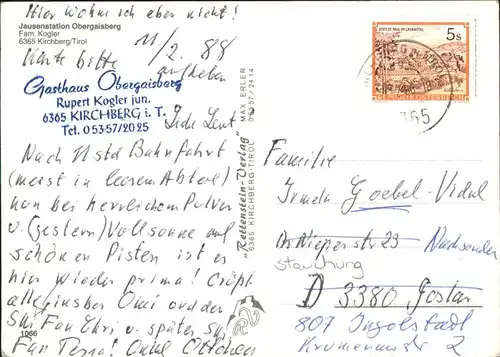 Hier wohne ich aber nicht!
Jausenstation Obergaisberg
Fam. Kogler
6365 Kirchberg/Tirol
11/2. 88
Karte bitte
aufheben
Gasthaus Obergaisberg
Rupert Kogler jun.
6365 KIRCHBERG i. T.
Tel. 05357/2025
Liebe Leut!
Nach 11 Std Bahnfahrt
(meist in leerem Abteil)
nun bei herrlichem Pulver
u. (gestern) Vollsonne auf
schönen Pisten ist es
hier wieder prima! Grüßt
allegins der Omi und der
Ski Fan Chri u später Ski
Fan Terna! Onkel Ottchen
1066
"Rettenstein-Verlag"
6365 KIRCHBERG/TIROL
MAX ERLER
05357/2414
STIFT ST. PAUL IM LAVANTTAL
5s
REPUBLIK ÖSTERREICH
6365
Familie
Irmela Goebel-Vidal
Nieperstr 23
Nachsenden
D 3380 Goslar
807 Ingolstadt
Krumenauerstr 2